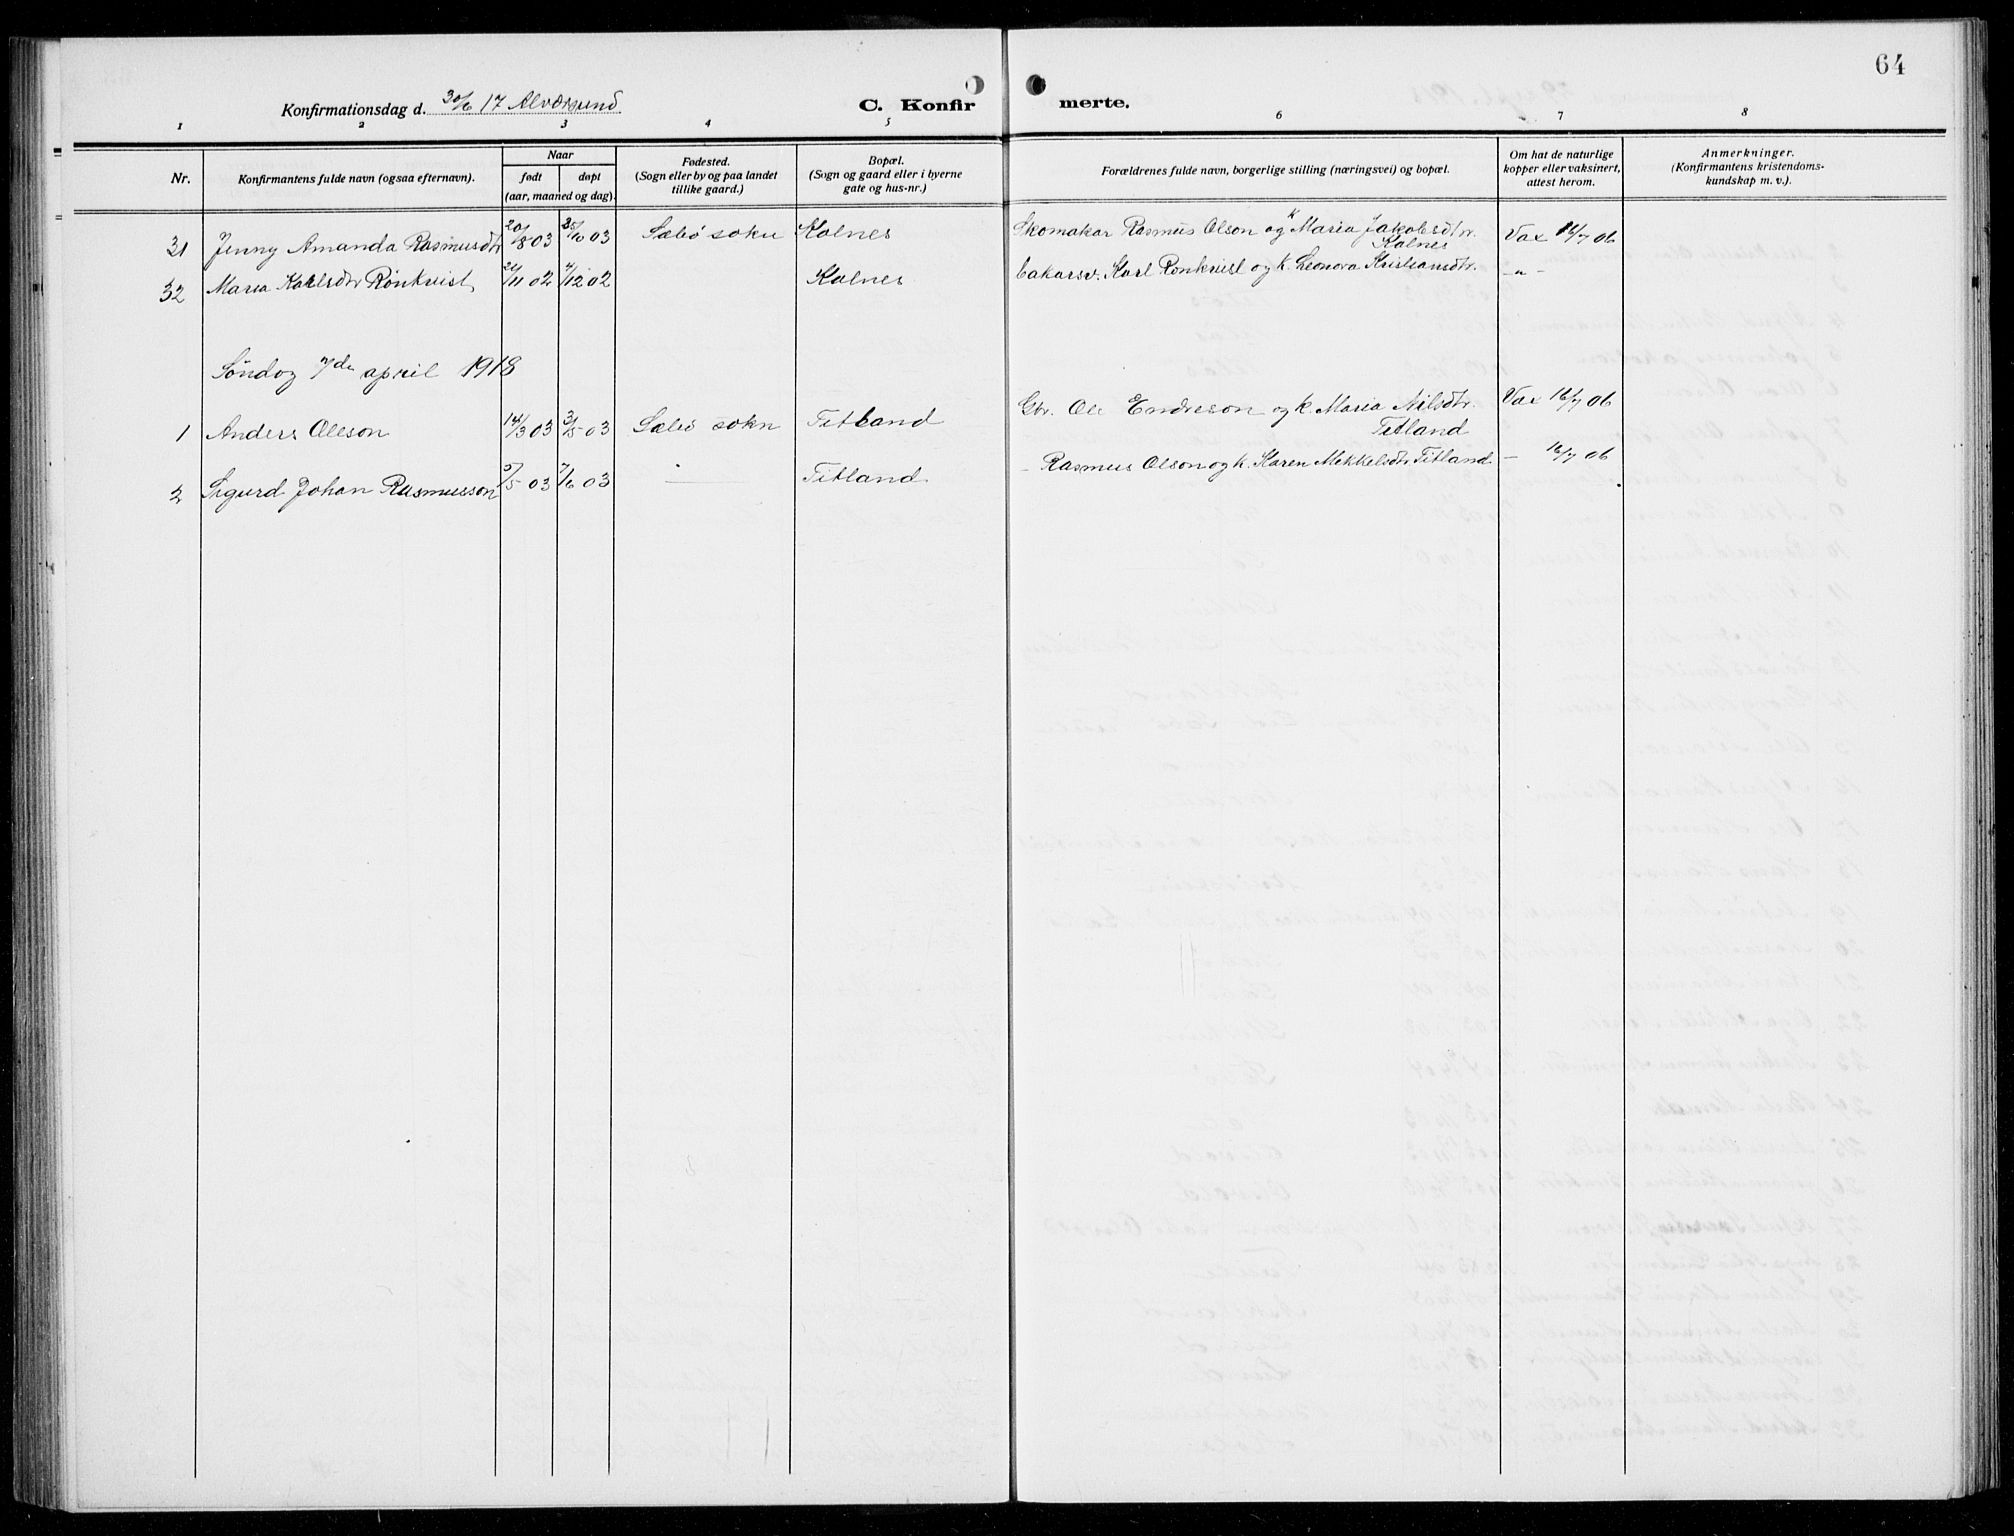 64
Konfirmationsdag d. 30/6 17 Alværsund
C. Konfir merte.
1 2 3 4 5 6 7 8
Nr.
Konfirmantens fulde navn (ogsaa efternavn).
Naar
født døpt
(aar, maaned og dag).
Fødested.
(Sogn eller by og paa landet
tillike gaard.)
Bopæl.
(Sogn og gaard eller i byerne
gate og hus-nr.)
Forældrenes fulde navn, borgerlige stilling (næringsvei) og bopæl.
Om hat de naturlige
kopper eller vaksinert,
attest herom.
Anmerkninger.
(Konfirmantens kristendoms-
kundskap m. v.).
31 Jenny Amanda Rasmusdtr 20/8 03 25/10 03 Sæbö sokn Kolnes Skomakar Rasmus Olson og k Maria Jakobsdtr. Vax 16/7 06
Kolnes
32 Maria Karlsdtr Rönkvist 21/11 02 4/12 02 Kolnes bakarsv. Karl Rönkvist og k. Leonora Kristiansdtr. -"-
Söndag 7de april 1918
1 Anders Oleson 14/3 03 3/5 03 Sæbö sokn Titland Gbr. Ole Endreson og k. Maria Nilsdtr. Vax 16/7 06
Titland
2 Sigurd Johan Rasmusson 5/5 03 7/6 03 — Titland - Rasmus Olson og k. Karen Mekkelsdtr. Titland — 16/7 06